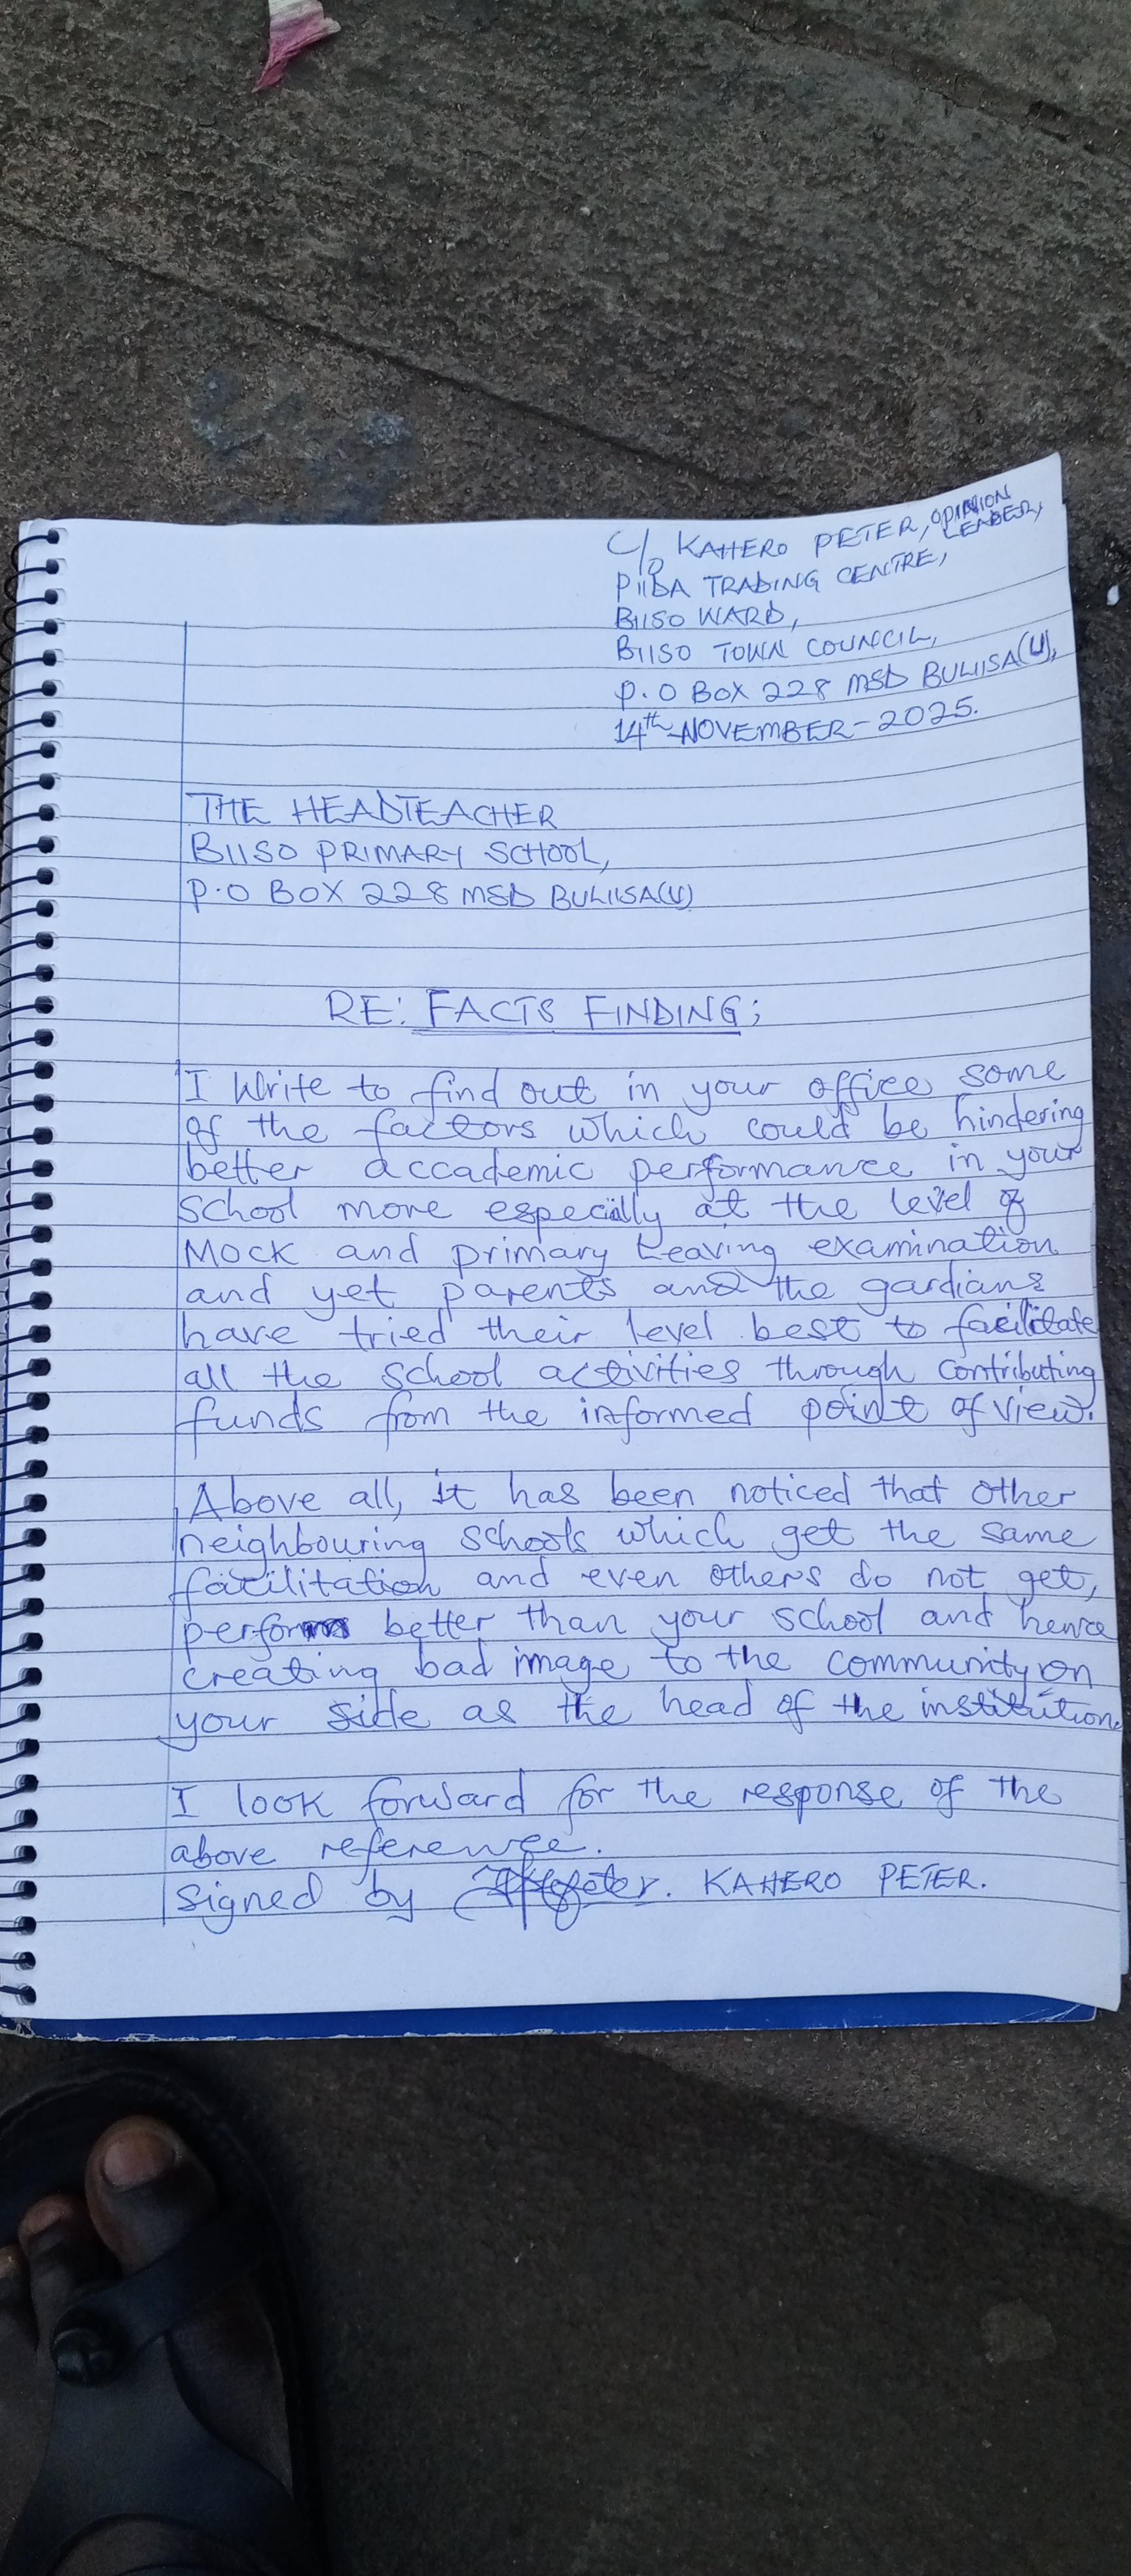 C/o KAHERO PETER, OPINION LEADER,
PIIDA TRADING CENTRE,
BIISO WARD,
BIISO TOWN COUNCIL,
P.O BOX 228 MSD BULIISA(U),
14th-NOVEMBER-2025.
THE HEADTEACHER
BIISO PRIMARY SCHOOL,
P.O BOX 228 MSD BULIISA(U)
RE: FACTS FINDING;
I Write to find out in your office some
of the factors which could be hindering
better accademic performance in your
school more especially at the level of
Mock and primary Leaving examination
and yet parents and the gardians
have tried their level best to facilitate
all the school activities through contributing
funds from the informed point of view.
Above all, it has been noticed that other
neighbouring schools which get the same
facilitation and even others do not get,
perform better than your school and hence
creating bad image to the community on
your side as the head of the institution.
I look forward for the response of the
above reference.
Signed by KAHERO PETER.